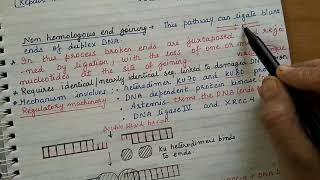 Repair
Non homologous end joining → This pathway can ligate blunt
ends of duplex DNA.
• In this process broken ends are juxtaposed and rejo
med by ligation, with the loss of one or more
nucleotides at the site of joining
• Requires identical nearly identical seq. linked to damaged DNA
• Mechanism involves :- heterodimer KU70 and KU80
Regulatory machinery
DNA dependent protein kinase
• Artemis trims the DNA ends
DNA ligase IV and XRCC4
Double strand break
Ku heterodimers binds
to ends.